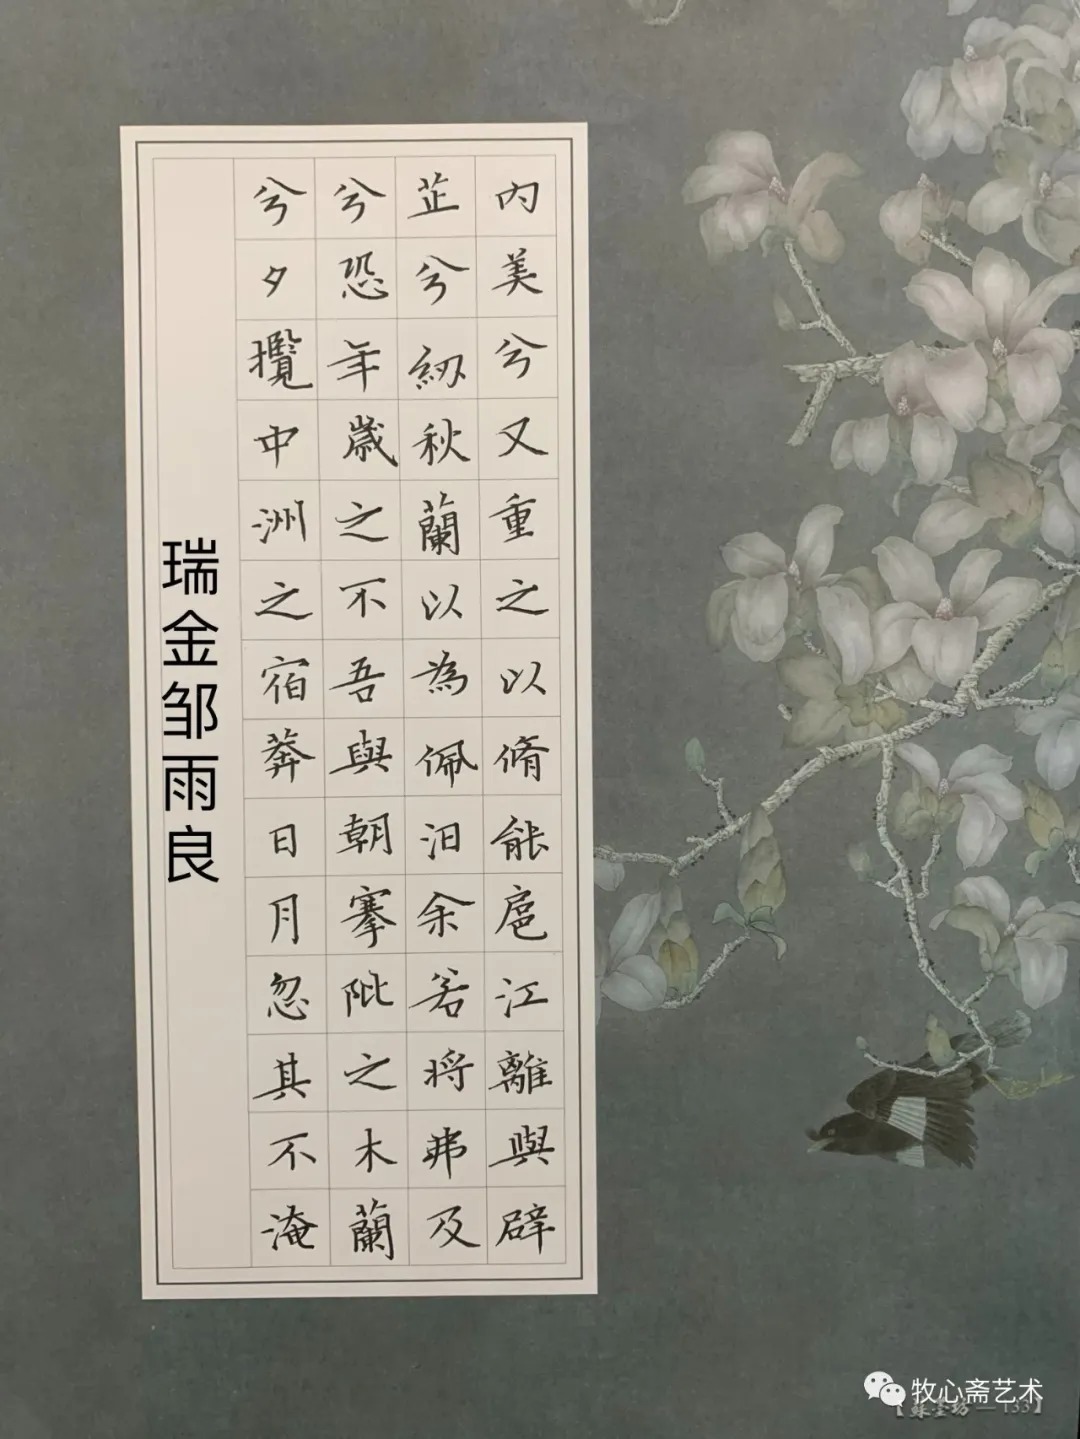 内美兮又重之以脩能扈江離與辟
芷兮紉秋蘭以為佩汩余若将弗及
兮恐年歳之不吾與朝搴阰之木蘭
兮夕攬中洲之宿莽日月忽其不淹
瑞金邹雨良
牧心斋艺术